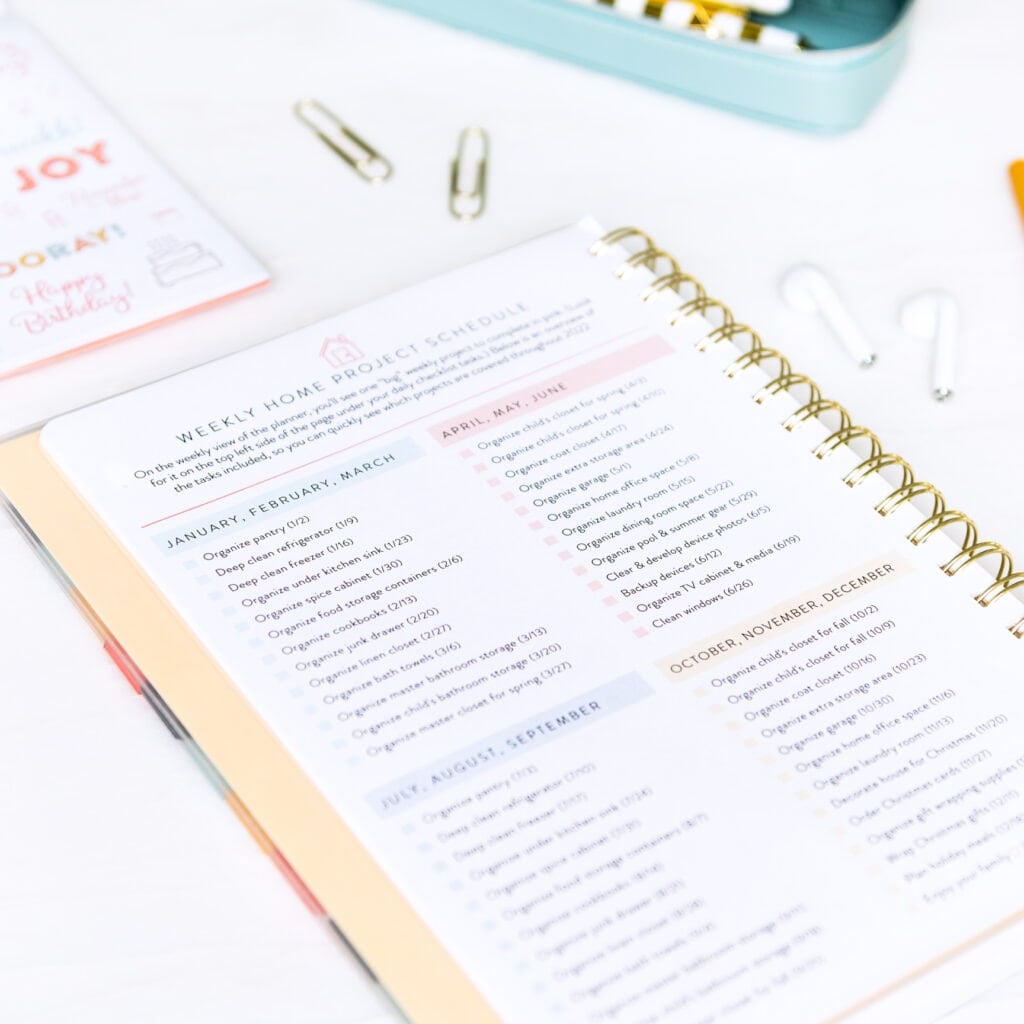 JOY
HOORAY!
Happy
Birthday!
WEEKLY HOME PROJECT SCHEDULE
On the weekly view of the planner, you'll see one "big" weekly project to complete in pink. (Look
for it on the top left side of the page under your daily checklist tasks.) Below is an overview of
the tasks included, so you can quickly see which projects are covered throughout 2022
JANUARY, FEBRUARY, MARCH
Organize pantry (1/2)
Deep clean refrigerator (1/9)
Deep clean freezer (1/16)
Organize under kitchen sink (1/23)
Organize spice cabinet (1/30)
Organize food storage containers (2/6)
Organize cookbooks (2/13)
Organize junk drawer (2/20)
Organize linen closet (2/27)
Organize bath towels (3/6)
Organize master bathroom storage (3/13)
Organize child's bathroom storage (3/20)
Organize master closet for spring (3/27)
APRIL, MAY, JUNE
Organize child's closet for spring (4/3)
Organize child's closet for spring (4/10)
Organize coat closet (4/17)
Organize extra storage area (4/24)
Organize garage (5/1)
Organize home office space (5/8)
Organize laundry room (5/15)
Organize dining room space (5/22)
Organize pool & summer gear (5/29)
Clear & develop device photos (6/5)
Backup devices (6/12)
Organize TV cabinet & media (6/19)
Clean windows (6/26)
JULY, AUGUST, SEPTEMBER
Organize pantry (7/3)
Deep clean refrigerator (7/10)
Deep clean freezer (7/17)
Organize under kitchen sink (7/24)
Organize spice cabinet (7/31)
Organize food storage containers (8/7)
Organize cookbooks (8/14)
Organize junk drawer (8/21)
Organize linen closet (8/28)
Organize bath towels
Organize master bathroom storage
Organize child's bathroom storage
OCTOBER, NOVEMBER, DECEMBER
Organize child's closet for fall (10/2)
Organize child's closet for fall (10/9)
Organize coat closet (10/16)
Organize extra storage area (10/23)
Organize garage (10/30)
Organize home office space (11/6)
Organize laundry room (11/13)
Decorate house for Christmas (11/20)
Order Christmas cards (11/27)
Organize gift wrapping supplies
Wrap Christmas gifts (12/11)
Plan holiday meals
Enjoy your family